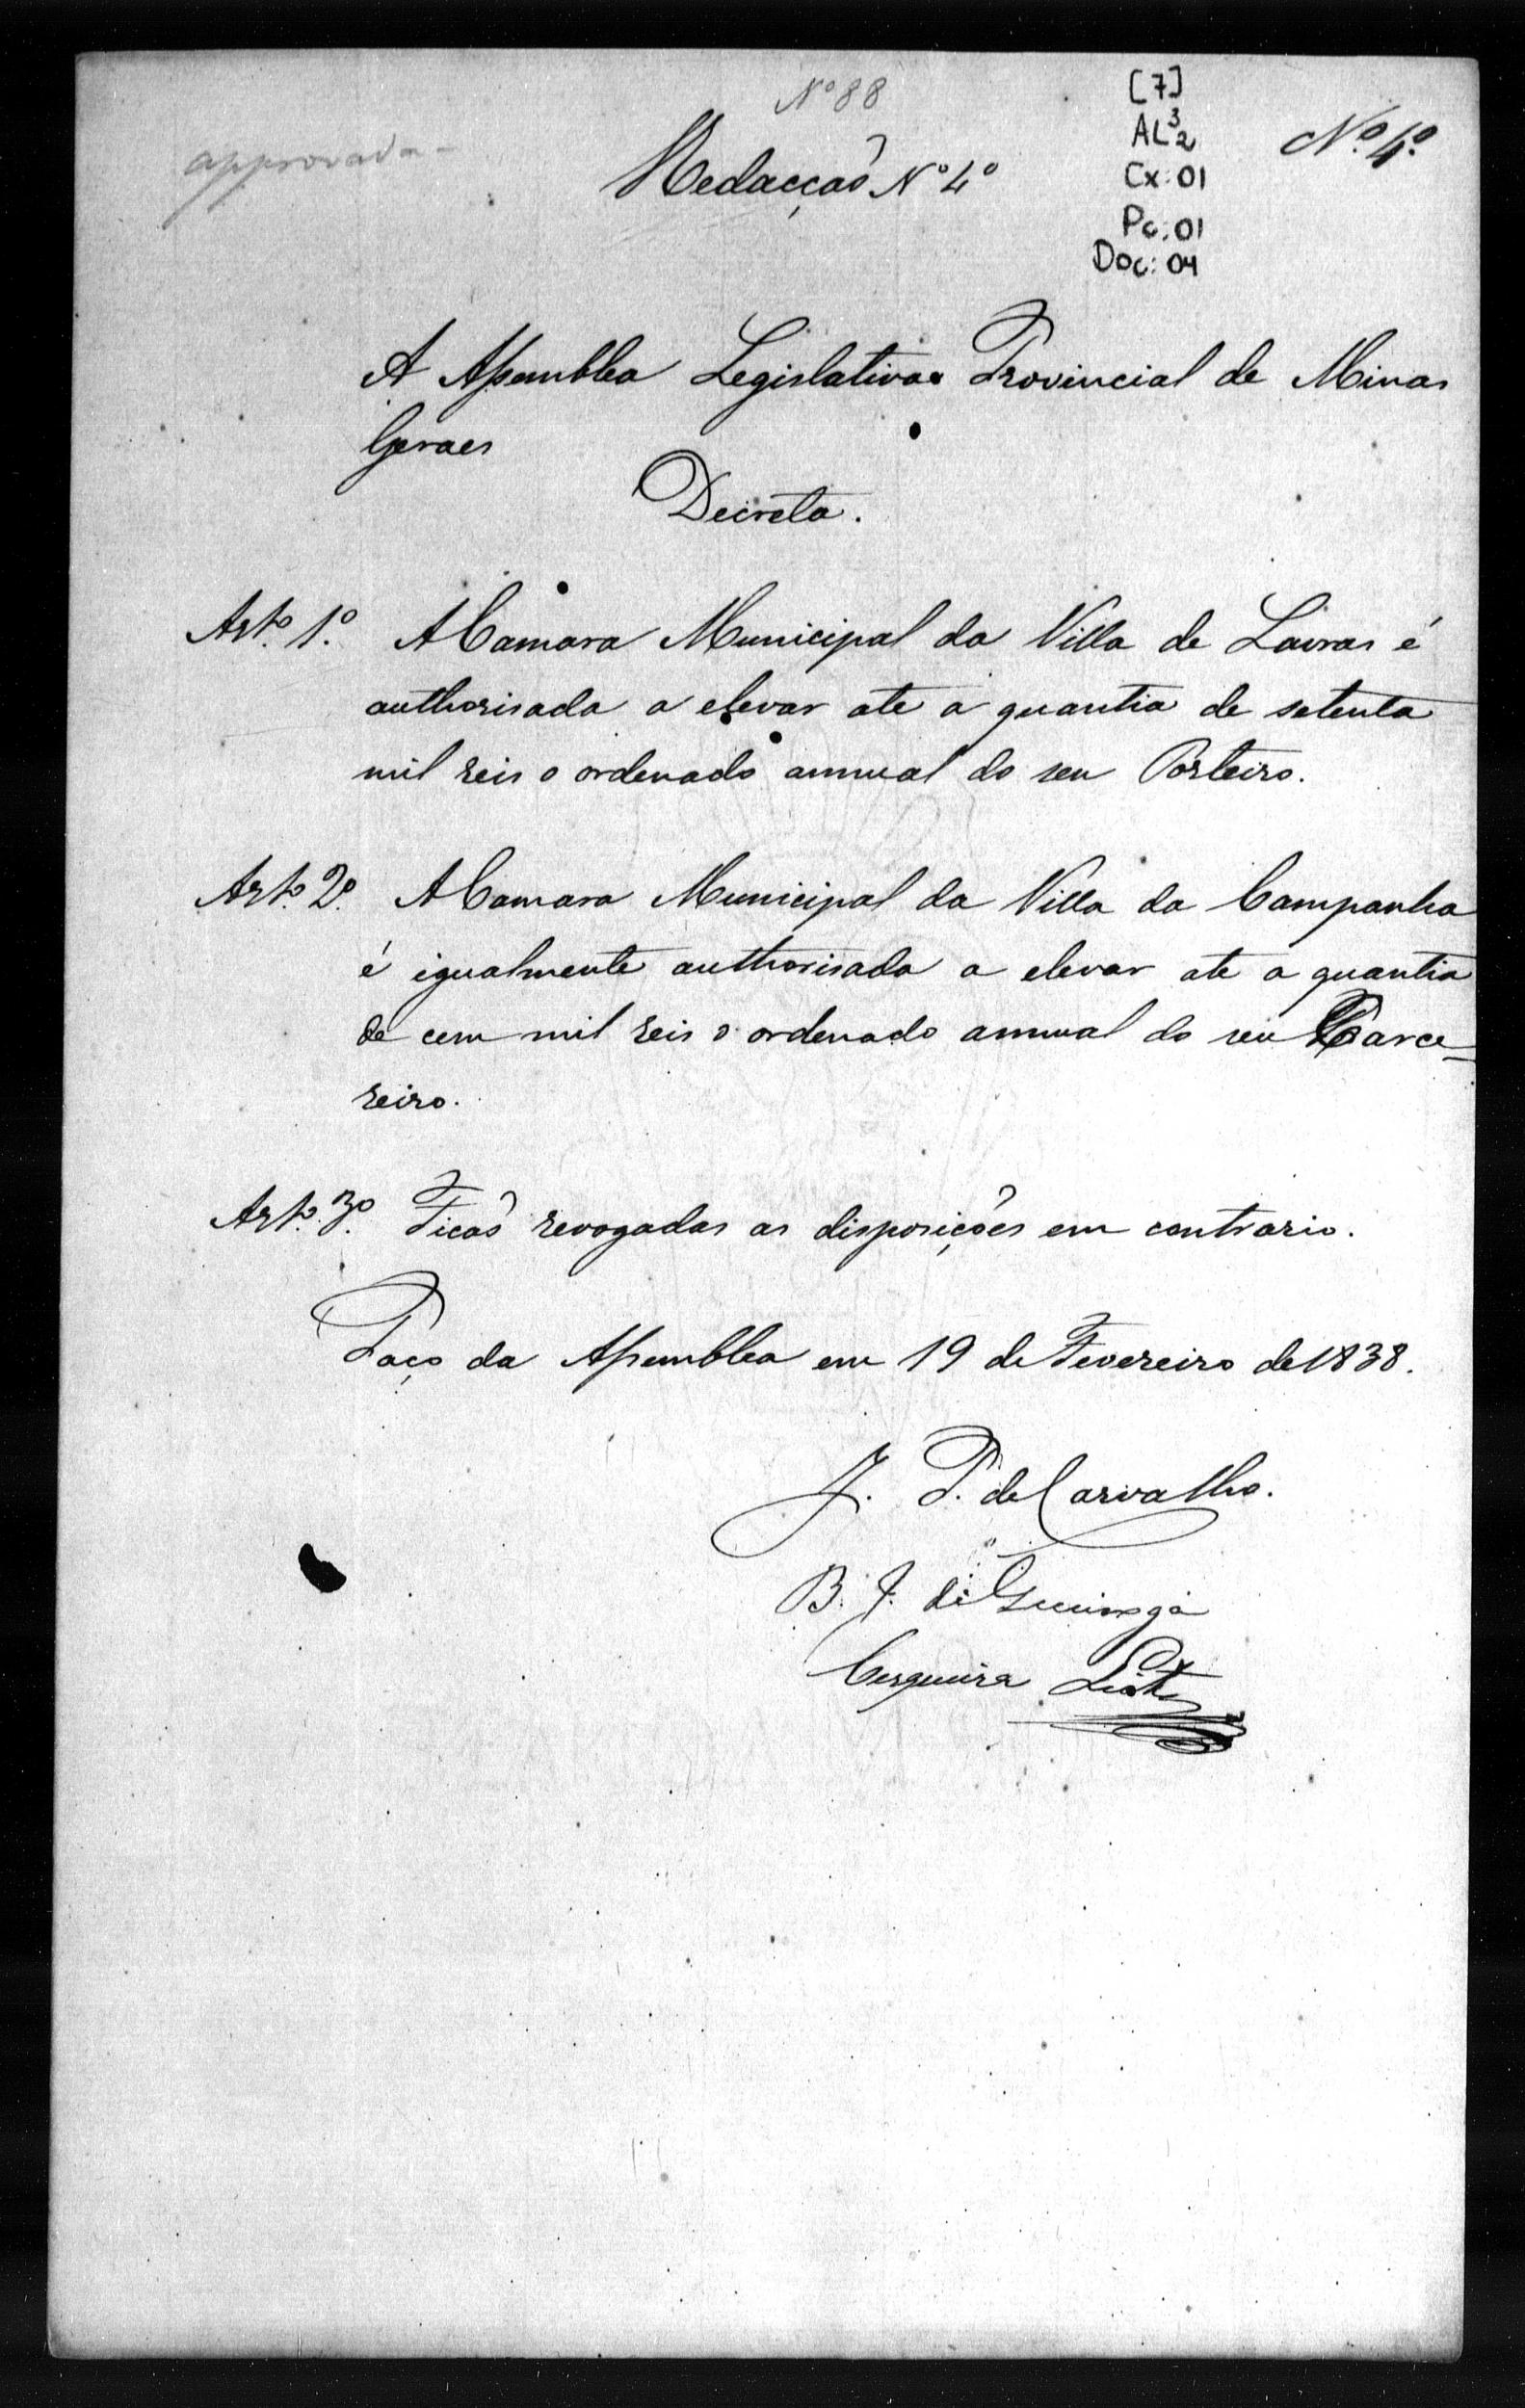 Nº 88
[7]
approvada -
AL³2
Nº 4º
Redacçaõ Nº 4º
Cx: 01
Pc: 01
Doc: 04
A Assemblea Legislativa Provincial de Minas
Geraes
Decreta.
Artº 1º. A Camara Municipal da Villa de Lavras é
authorisada a elevar ate a quantia de setenta
mil reis o ordenado annual do seu Porteiro.
Artº 2º. A Camara Municipal da Villa da Campanha
é igualmente authorisada a elevar ate a quantia
de cem mil reis o ordenado annual do seu Carce=
reiro.
Artº 3º. Ficaõ revogadas as disposiçoẽs em contrario.
Paço da Assemblea em 19 de Fevereiro de 1838.
J. P. de Carvalho.
B. J. de
Cerqueira Leite